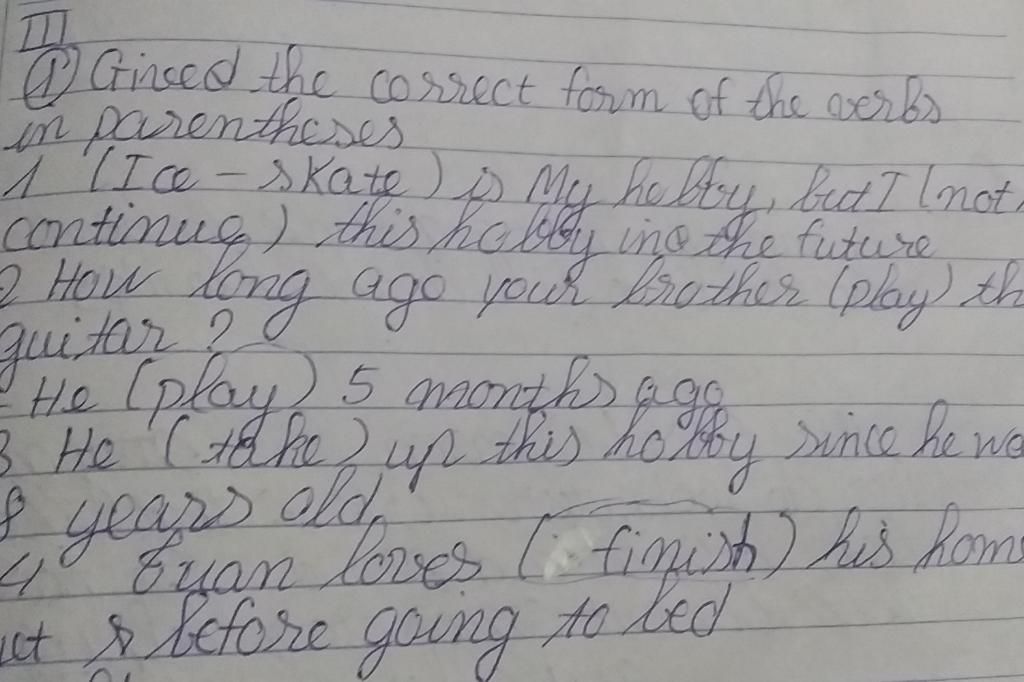 III
① Gived the correct form of the verbs
in parentheses
1 (Ice - skate) is My hobby, but I (not
continue) this hobby in the future
2 How long ago your brother (play) th
guitar ?
- He (play) 5 months ago
3 He (take) up this hobby since he wa
8 years old.
4 Tuan loves (finish) his home
before going to bed